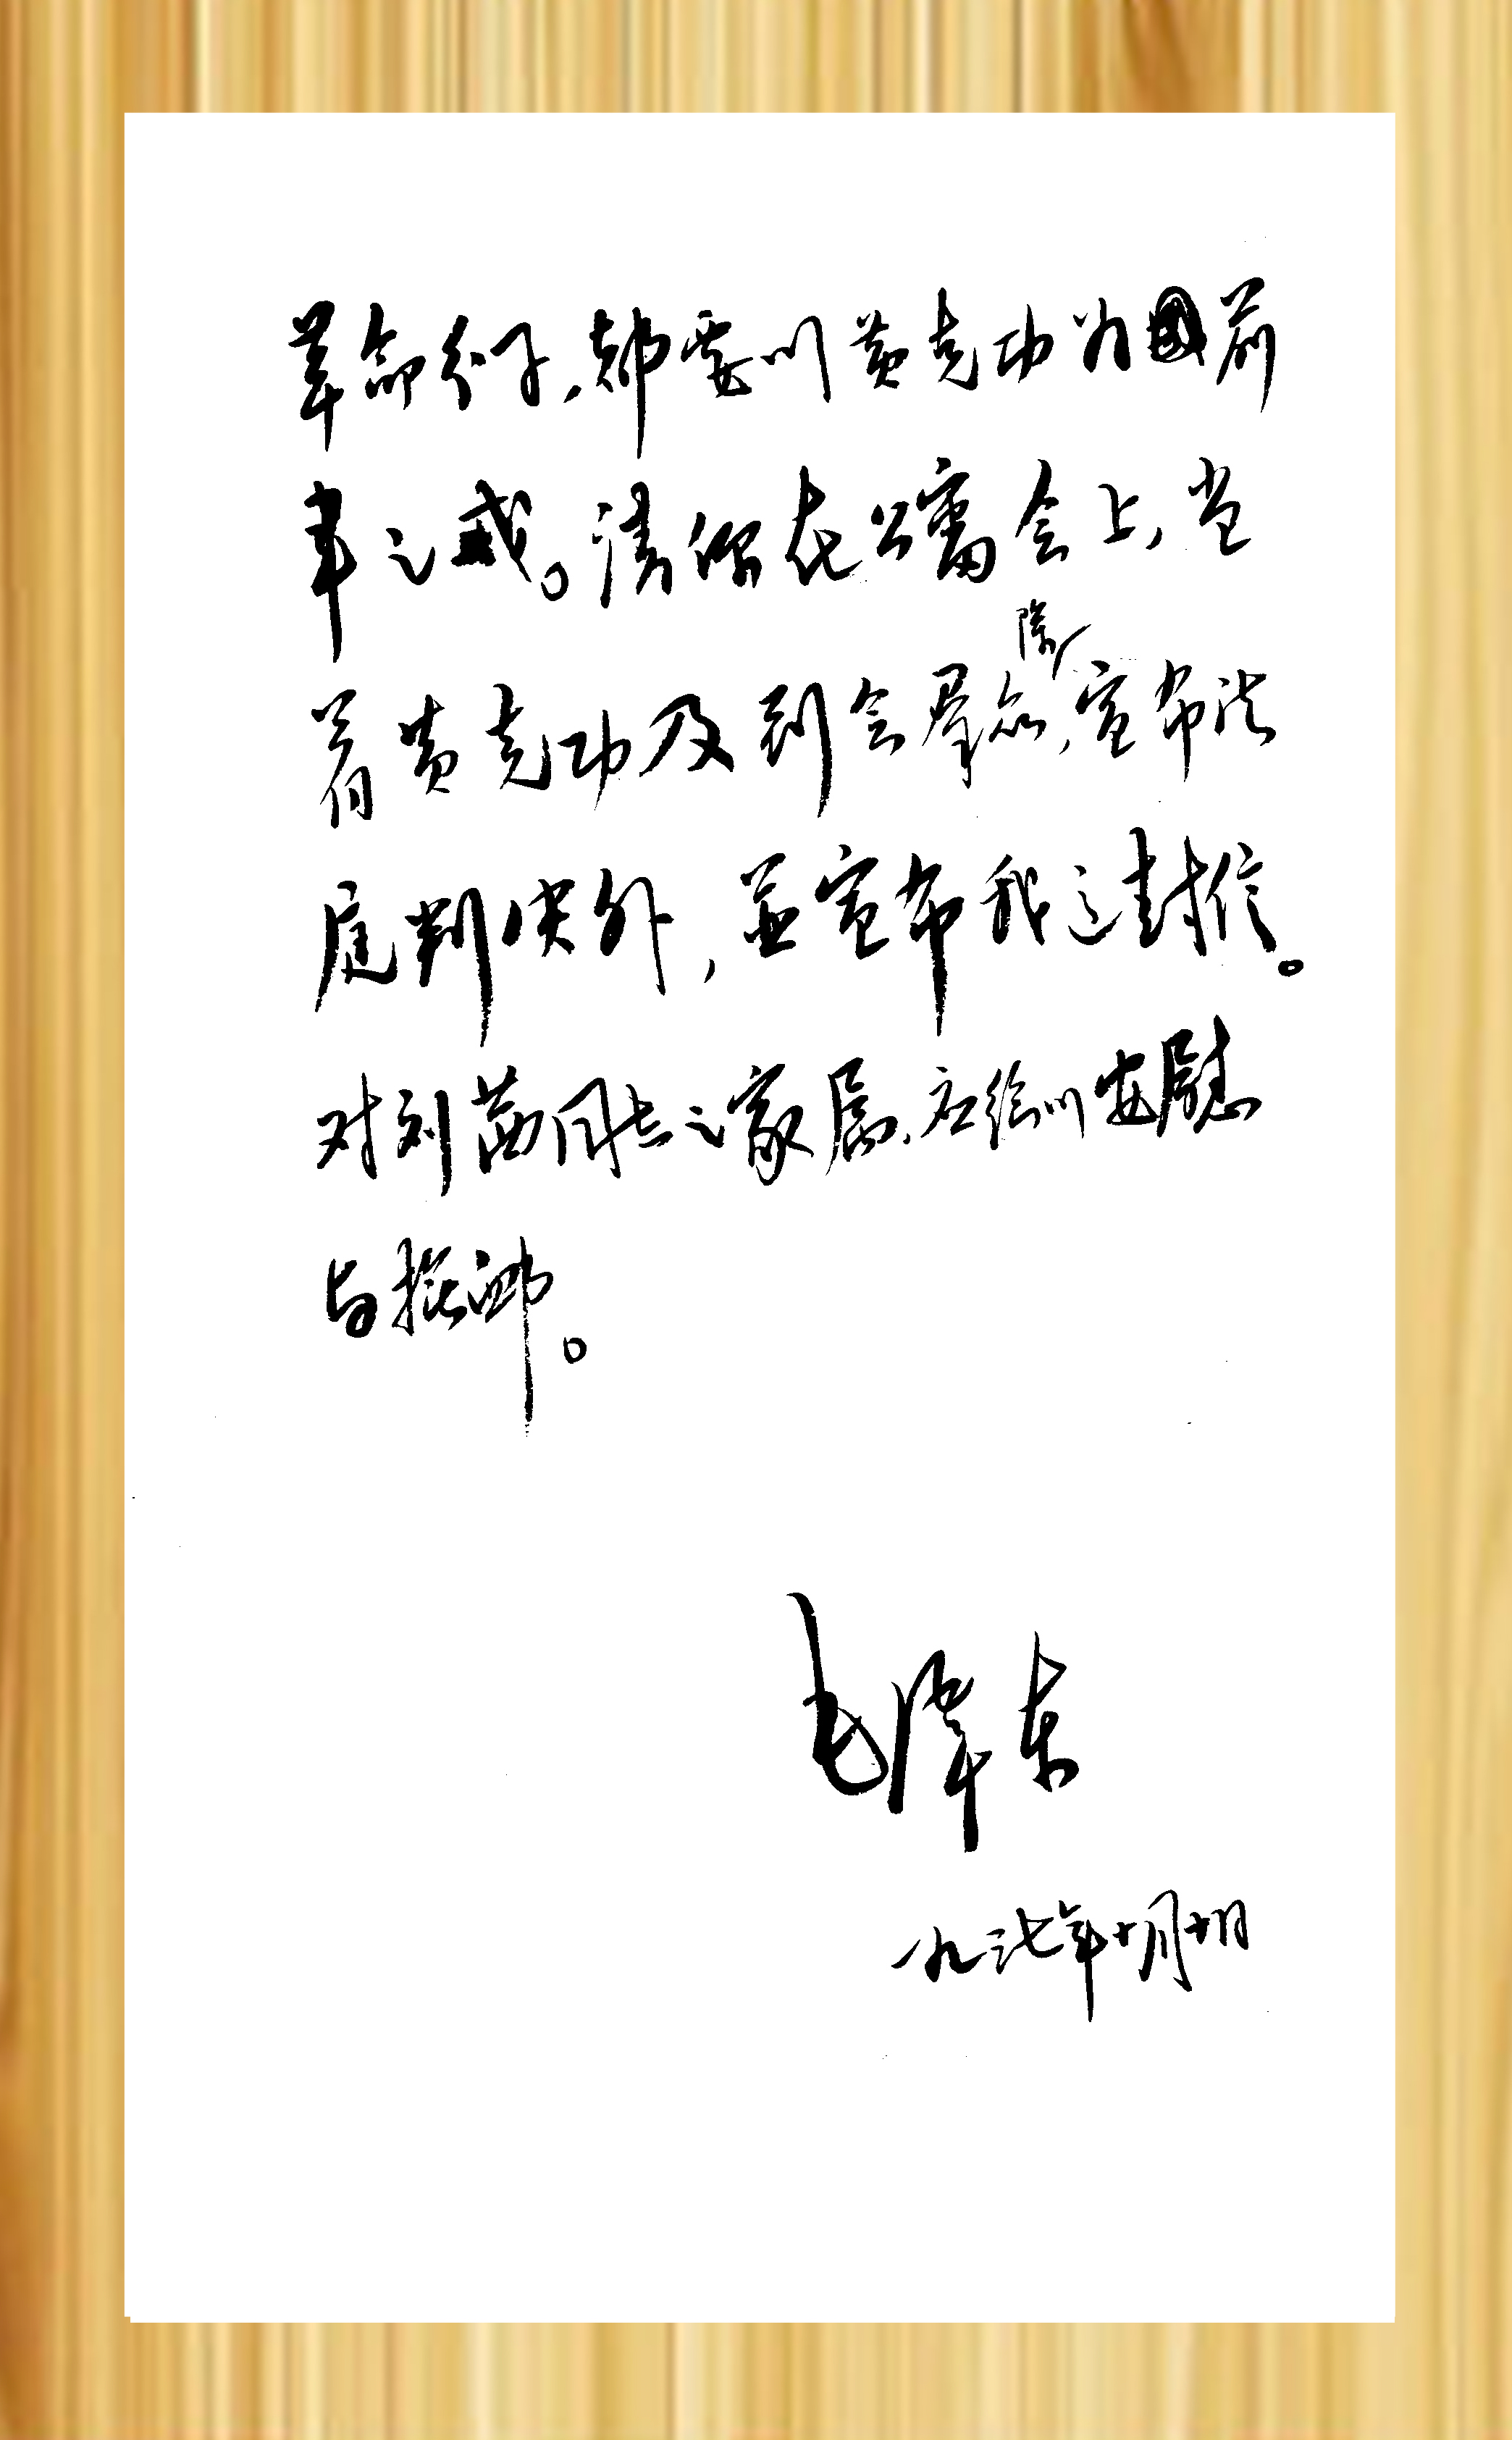 革命分子，都要以黄克功为前
车之戒。请你在公審会上，当
着黄克功及到会羣众，除宣布法
庭判决外，並宣布我这封信。
对刘茜同志之家属，应给以安慰
与抚卹。
毛泽东
一九三七年十月十日